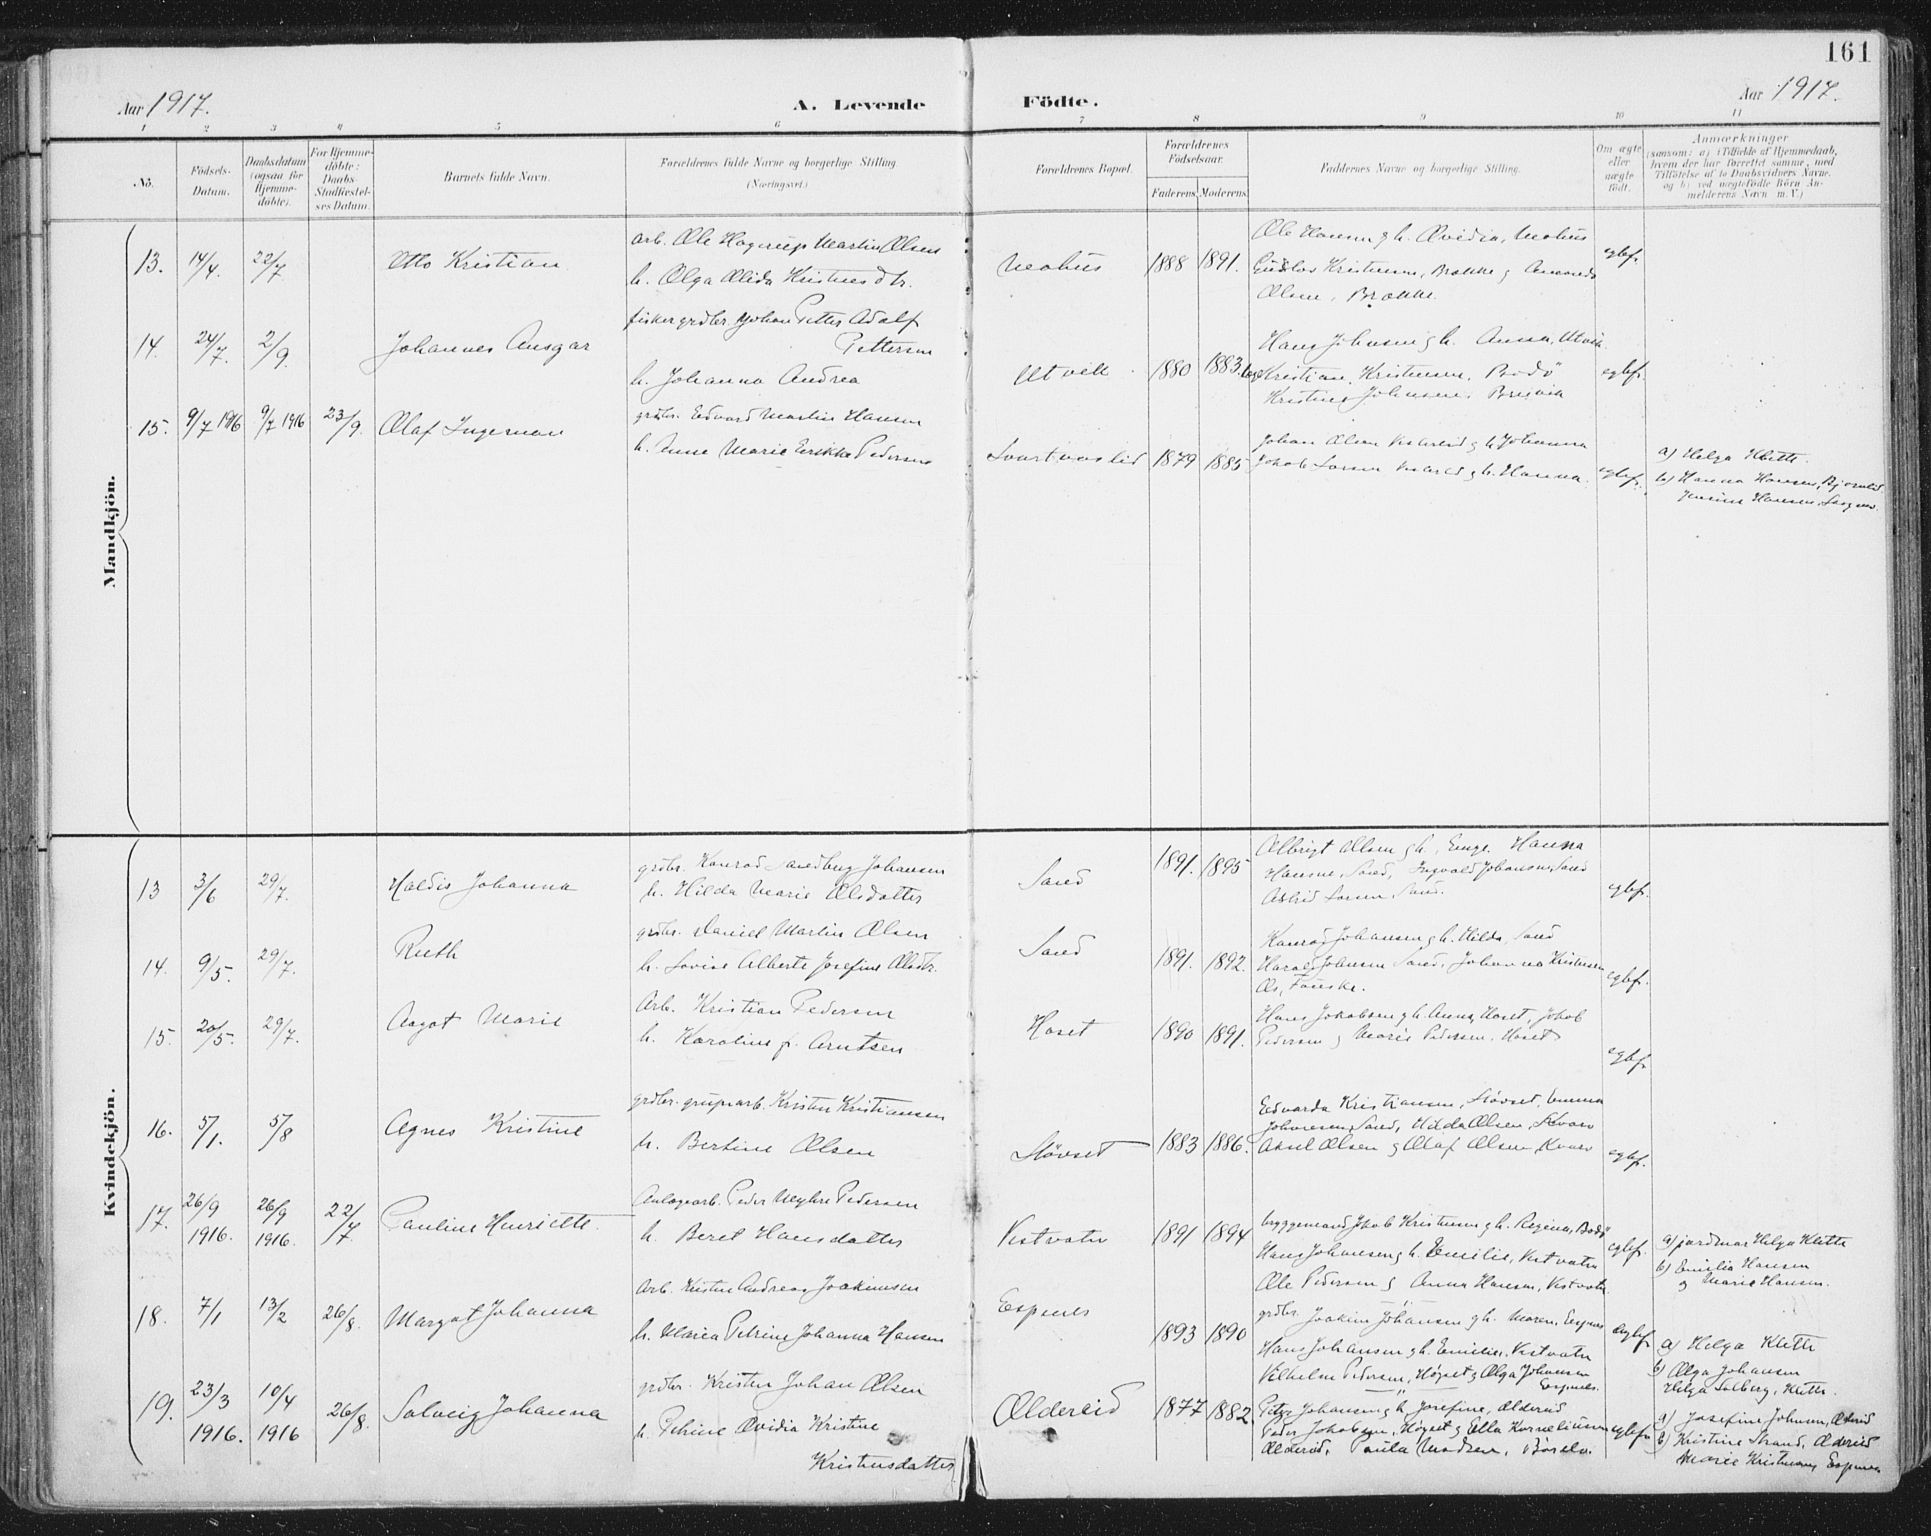 161
Aar 1917.
A. Levende Födte.
Aar 1917.
1 2 3 4 5 6 7 8 9 10 11
No.
Födsels-
Datum.
Daabsdatum
(ogsaa for
Hjemme-
döbte).
For Hjemme-
döbte:
Daabs-
Stadfæstel-
ses Datum.
Barnets fulde Navn.
Forældrenes fulde Navne og borgerlige Stilling.
(Næringsvei.)
Forældrenes Bopæl.
Forældrenes
Födselsaar.
Faderens. Moderens.
Faddernes Navne og borgerlige Stilling.
Om ægte
eller
uægte
født.
Anmærkninger
(saasom: a) i Tilfælde af Hjemmedaab,
hvem der har forrettet samme, med
Tilföielse af to Daabsvidners Navne.
og b) ved uægtefödte Börn An-
melderens Navn m. V.)
Mandkjön.
13. 14/4. 22/7. Otto Kristian
arb. Ole Hagerup Martin Olsen
h. Olga Alida Kristnesdtr.
1888 1891.
Ole Hansen g h. Ovidia,
Kristensen, Brække g
Olsen, Brække.
egbf.
14. 24/7. 2/9. Johannes Ansgar
fisker grdbr. Johan Petter Adolf
Pettersen
h. Johanna Andrea
Utvik 1880 1883.
Hans Johnsen g h. Anna, Utvik.
Kristian Kristensen, Bodö
Kristine Johnsen, Breivik
egbf.
15. 9/7 1916 9/7 1916 23/9. Olaf Ingeman
grdbr. Edvard Martin Hansen
h. Anne Marie Erikke Pedersen
Svartvaslid 1879 1885
Johan Olsen g h Johanna
Jakob Larsen g h. Hanna.
egbf.
a) Helga Klette.
b) Hanna Hansen,
Jensine Hansen,
Kvindekjön.
13 3/6 29/7. Haldis Johanna
grdbr. Konrad Sandberg Johansen
h. Hilda Marie Olsdatter
Sand 1891. 1895
Albrigt Olsen g h, Hanna
Hansen, Sand, Ingvald Johansen, Sand
Astrid Larsen, Sand.
egbf.
14. 9/5. 29/7. Ruth
grdbr. Daniel Martin Olsen
h. Lovise Alberte Josefine Olsdtr.
Sand 1891. 1892.
Konrad Johansen g h. Hilda, Sand
Harald Johansen Sand, Johanna Kristensen
Os, Fauske.
egbf.
15. 20/5. 29/7. Aagot Marie
Arb. Kristian Pedersen
h. Karoline f. Arntsen
Hoset 1890 1891.
Hans Jakobsen g h. Anna, Hoset, Jakob
Pedersen g Marie Pedersen, Hoset
egbf.
16. 5/1. 5/8 Agnes Kristine
grdbr. grubearb. Kristen Kristiansen
h. Bertine Olsen
Stövset 1883 1886.
Edvarda Kristiansen, Stövset, Emma
Johnsen, Sand, Hilda Olsen,
Aksel Olsen g Olaf Olsen,
egbf.
17. 26/9 1916. 26/9 1916. 22/7. Pauline Henriette.
Anlægsarb. Peder Myhre Pedersen
h. Beret Hansdatter
Vestvatn 1891 1894
byggemand Jakob Kristensen g h. Regina, Bodö
Hans Johansen g h. Emilie, Vestvatn
Ole Pedersen g Anna Hansen, Vestvatn.
egbf.
a) jordmor Helga Klette
b) Emilia Hansen
g Marie Hansen.
18. 7/1 13/2 26/8. Margot Johanna
Arb. Kristen Andreas Joakimsen
h. Maria Petrine Johanna Hansen
Espenes 1893 1890
grdbr. Joakim Johansen g h. Maren, Espnes
Hans Johansen g h. Emilie, Vestvatn
Vilhelm Pedersen, Høgset g Olga Johansen
Espenes.
egbf.
a) Helga Klette
b) Olga Johansen
Helga Solberg, Klette.
19. 23/3 1916. 10/4 1916 26/8. Solveig Johanna
grdbr. Kristen Johan Olsen
h. Petrine Ovidia Kristine
Kristensdatter
Oldereid 1877 1882.
Peter Johansen g h Josefine, Oldereid
Peder Jakobsen, Høgset g Ella Korneliussen
Oldereid, Paula Madsen,
egbf.
a) Josefine Johnsen, Oldereid
b) Kristine Strand, Oldereid
Marie Kristensen, Espenes